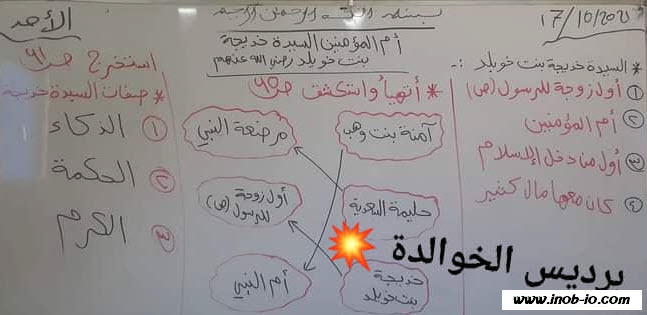 الأحد
بسم الله الرحمن الرحيم
17/10/202
أم المؤمنين السيدة خديجة
بنت خويلد رضي الله عنهم
* السيدة خديجة بنت خويلد :-
① أول زوجة للرسول (ص)
② أم المؤمنين
③ أول من دخل الإسلام
④ كان معها مال كثير
* أتهيأ وأستكشف ص٦٥
آمنة بنت وهب
مرضعة النبي
حليمة السعدية
أول زوجة
للرسول (ص)
خديجة
بنت خويلد
أم النبي
استخرج ص٦١
* صفات السيدة خديجة
① الذكاء
② الحكمة
③ الكرم
برديس الخوالدة
www.inob-io.com